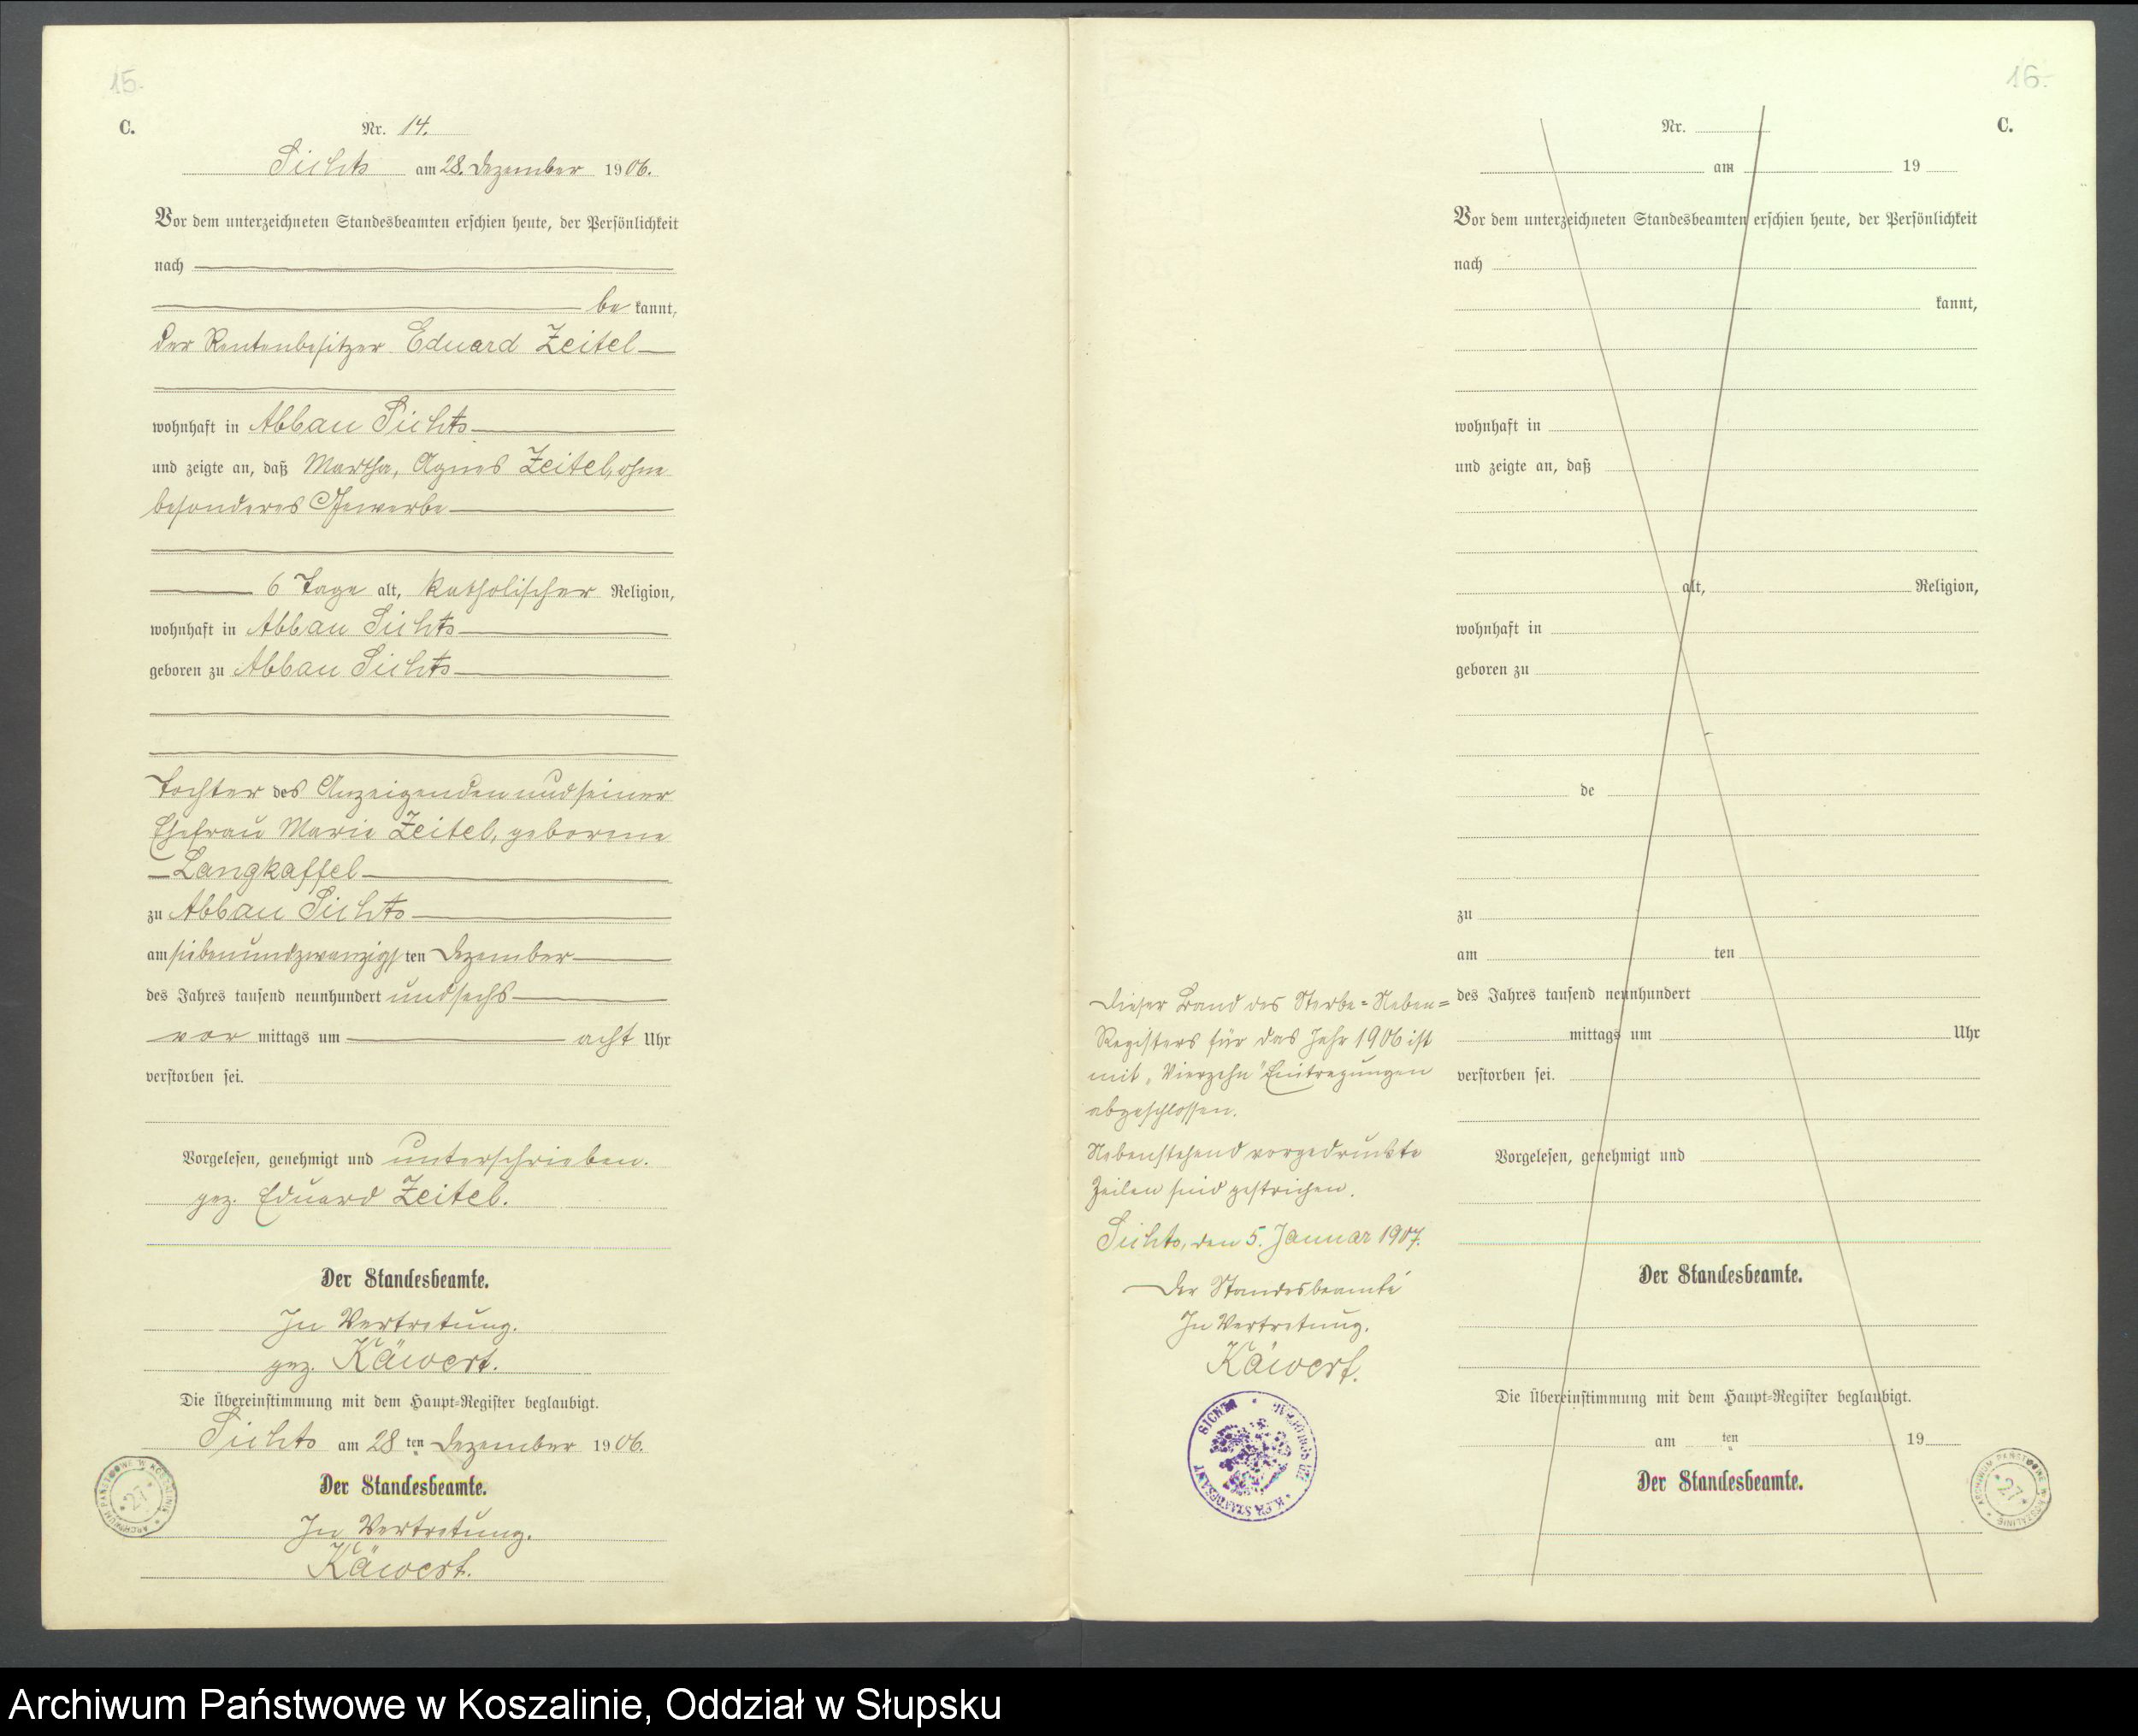 15.
C.
Nr. 14.
Sichts am 28. Dezember 1906.
Vor dem unterzeichneten Standesbeamten erschien heute, der Persönlichkeit
nach
be kannt,
der Rentenbesitzer Eduard Zeitel
wohnhaft in Abbau Sichts
und zeigte an, daß Martha, Agnes Zeitel, ohne
besonderes Gewerbe
6 Tage alt, katholischer Religion,
wohnhaft in Abbau Sichts
geboren zu Abbau Sichts
Tochter des Anzeigenden und seiner
Ehefrau Marie Zeitel, geborene
Langkaffel
zu Abbau Sichts
am siebenundzwanzigsten Dezember
des Jahres tausend neunhundert und sechs
vor mittags um acht Uhr
verstorben sei.
Vorgelesen, genehmigt und unterschrieben.
gez. Eduard Zeitel.
Der Standesbeamte.
In Vertretung.
gez. Käwert.
Die Übereinstimmung mit dem Haupt-Register beglaubigt.
Sichts am 28 ten Dezember 1906.
Der Standesbeamte.
In Vertretung.
Käwert.
ARCHIWUM PAŃSTWOWE W KOSZALINIE
27
16.
C.
Nr.
am 19
Vor dem unterzeichneten Standesbeamten erschien heute, der Persönlichkeit
nach
kannt,
wohnhaft in
und zeigte an, daß
alt, Religion,
wohnhaft in
geboren zu
de
zu
am ten
des Jahres tausend neunhundert
mittags um Uhr
verstorben sei.
Vorgelesen, genehmigt und
Der Standesbeamte.
Die Übereinstimmung mit dem Haupt-Register beglaubigt.
am ten 19
Der Standesbeamte.
Dieser Band des Sterbe-Neben-
Registers für das Jahr 1906 ist
mit "Vierzehn" Eintragungen
abgeschlossen.
Nebenstehend vorgedruckte
Zeilen sind gestrichen.
Sichts, den 5. Januar 1907.
Der Standesbeamte
In Vertretung.
Käwert.
K. PR. STANDESAMT
ARCHIWUM PAŃSTWOWE W KOSZALINIE
27
Archiwum Państwowe w Koszalinie, Oddział w Słupsku